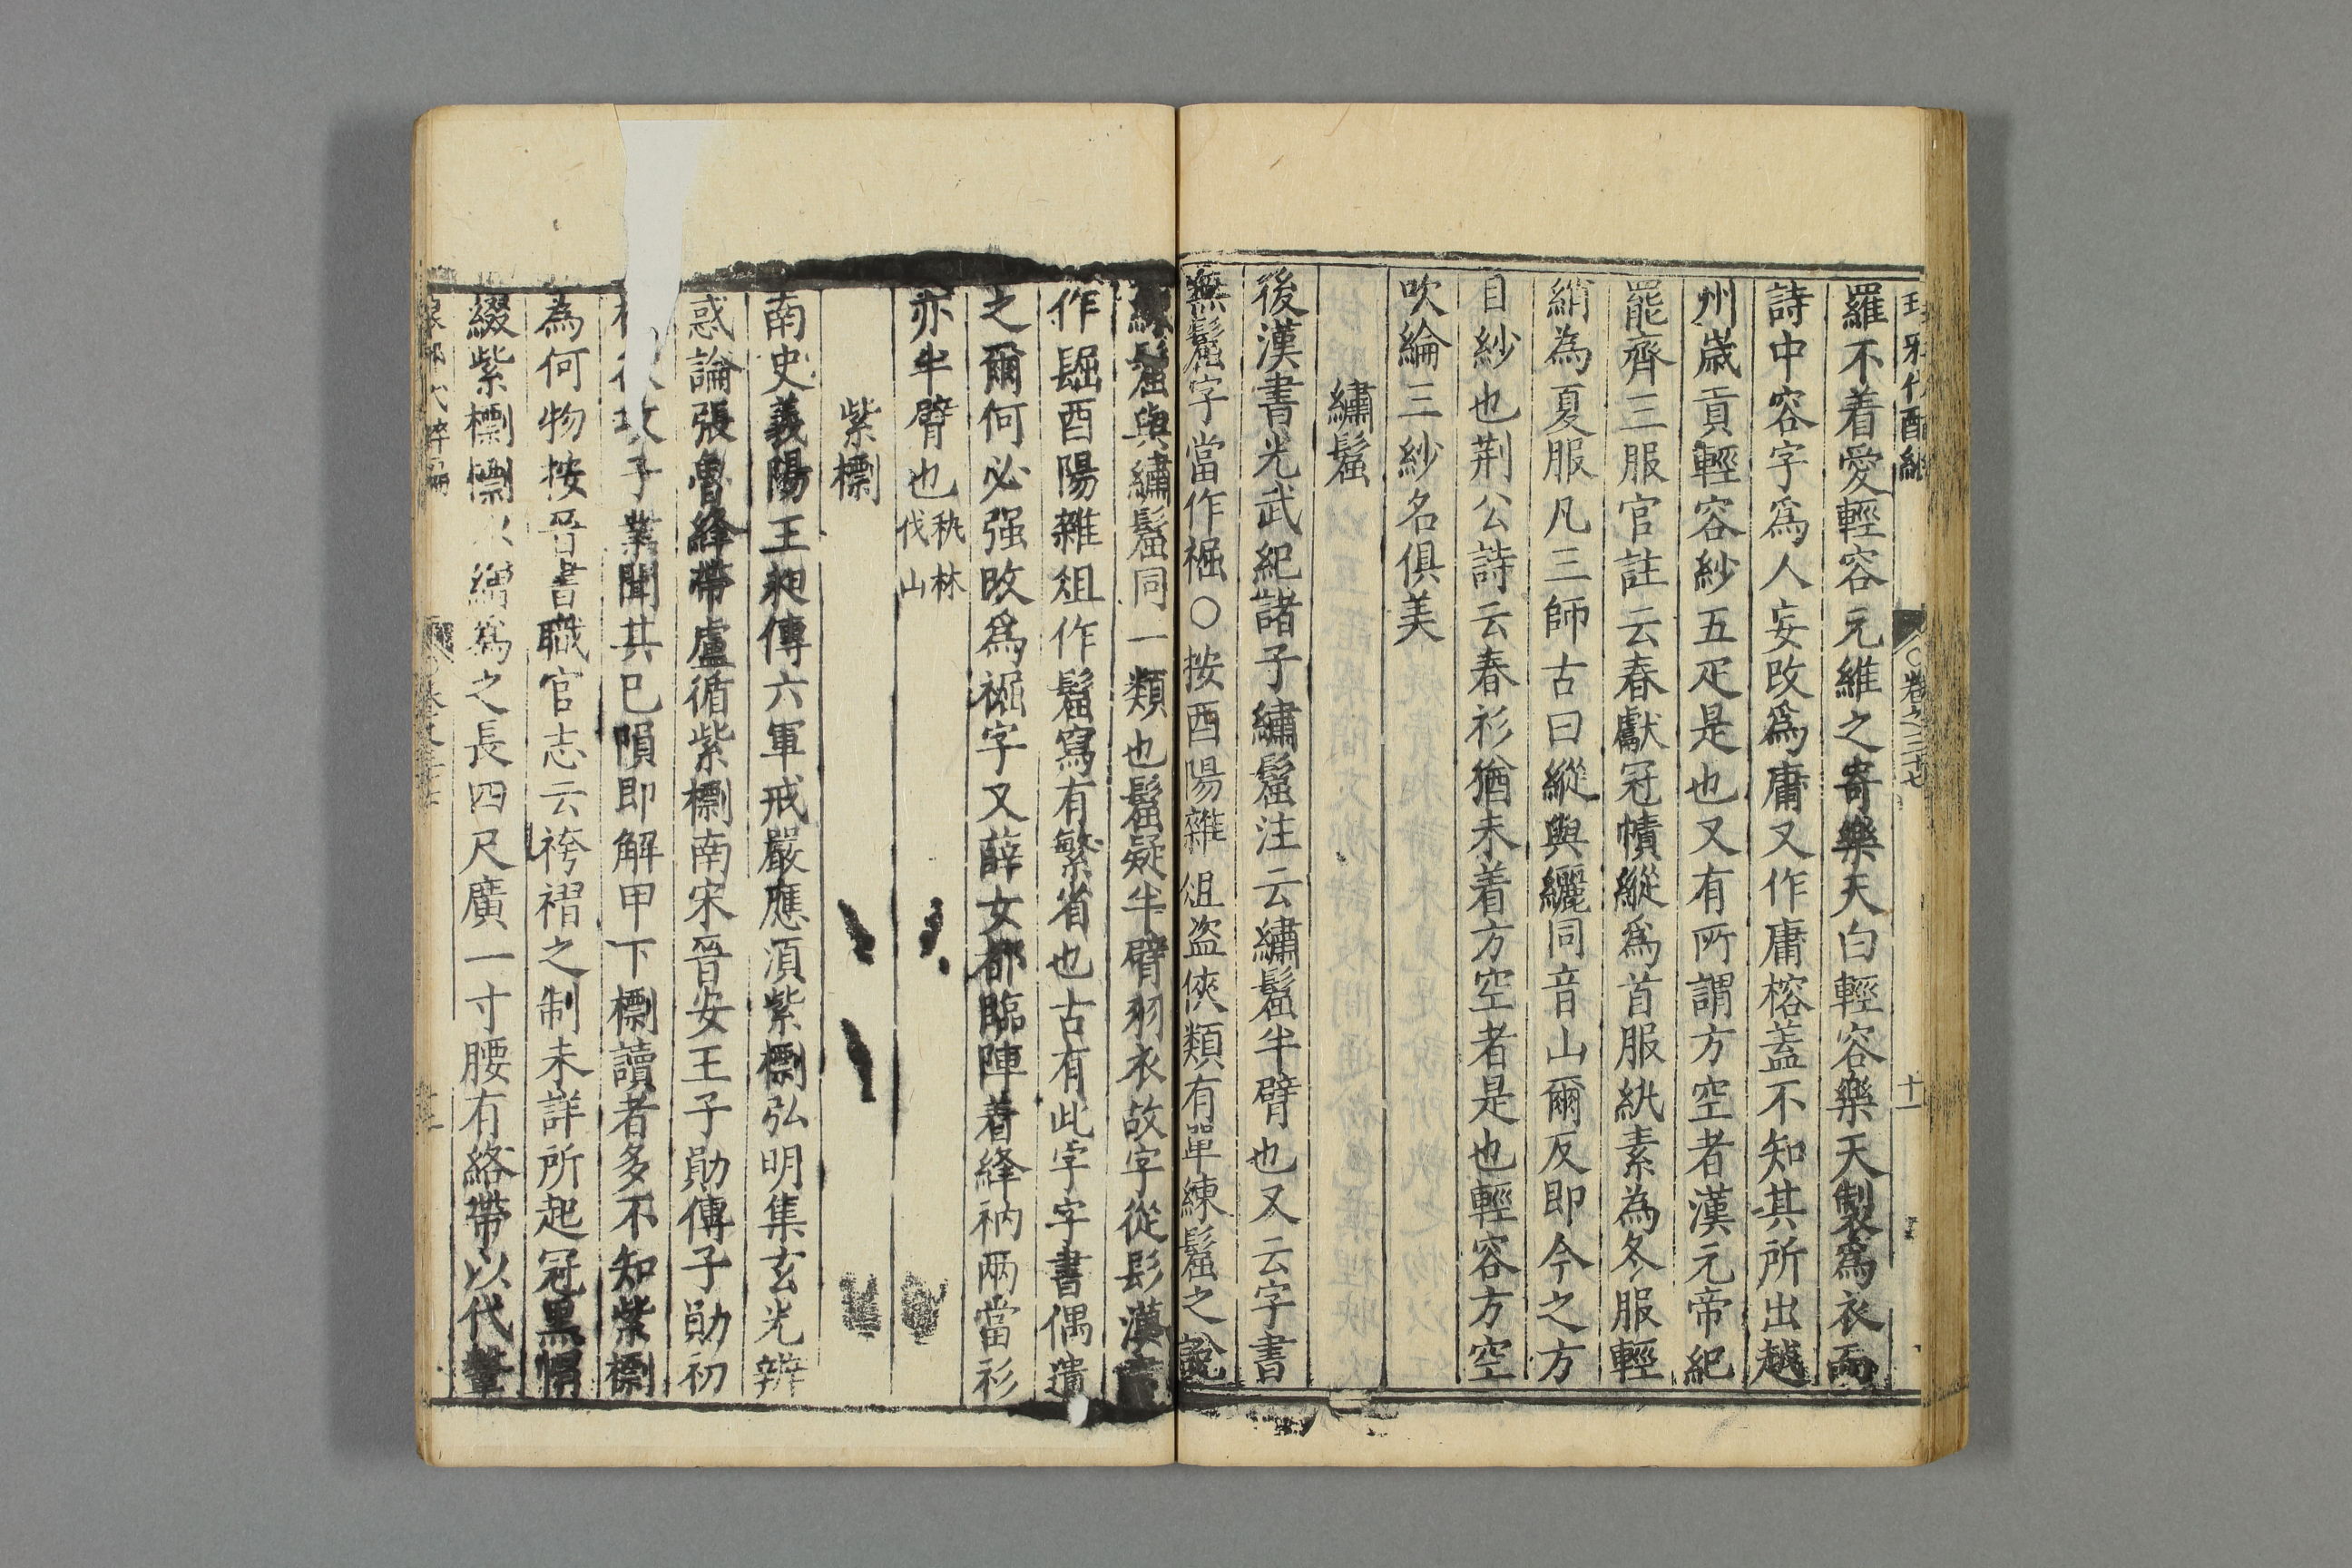 羅不着愛輕容元維之寄樂天白輕容樂天製爲衣而
詩中容字爲人妄改爲庸又作庸榕蓋不知其所出越
州歲貢輕容紗五疋是也又有所謂方空者漢元帝紀
罷齊三服官註云春獻冠幘縱爲首服紈素為冬服輕
綃為夏服凡三師古曰縱與纚同音山爾反即今之方
目紗也荆公詩云春衫猶未着方空者是也輕容方空
吹綸三紗名俱美
繡䯳
後漢書光武紀諸子繡䯳注云繡䯳半臂也又云字書
無䯳字當作裾○按酉陽雜俎盗俠類有單練䯳之說
練䯳與繡䯳同一類也䯳疑半臂羽衣故字從髟漢書
作镼酉陽雜俎作䯳寫有繁省也古有此字字書偶遺
之爾何必强改爲裾字又薛女都臨陣着絳衲兩當衫
亦半臂也秇林伐山
紫標
南史義陽王昶傳六軍戒嚴應須紫標弘明集玄光辨
惑論張魯絳帶盧循紫標南宋晉安王子勛傳子勛初
子業聞其已隕即解甲下標讀者多不知紫標
為何物按晉書職官志云袴褶之制未詳所起冠黑帽
綴紫標標以繒爲之長四尺廣一寸腰有絡帶以代鞶
卷之三十七
十一